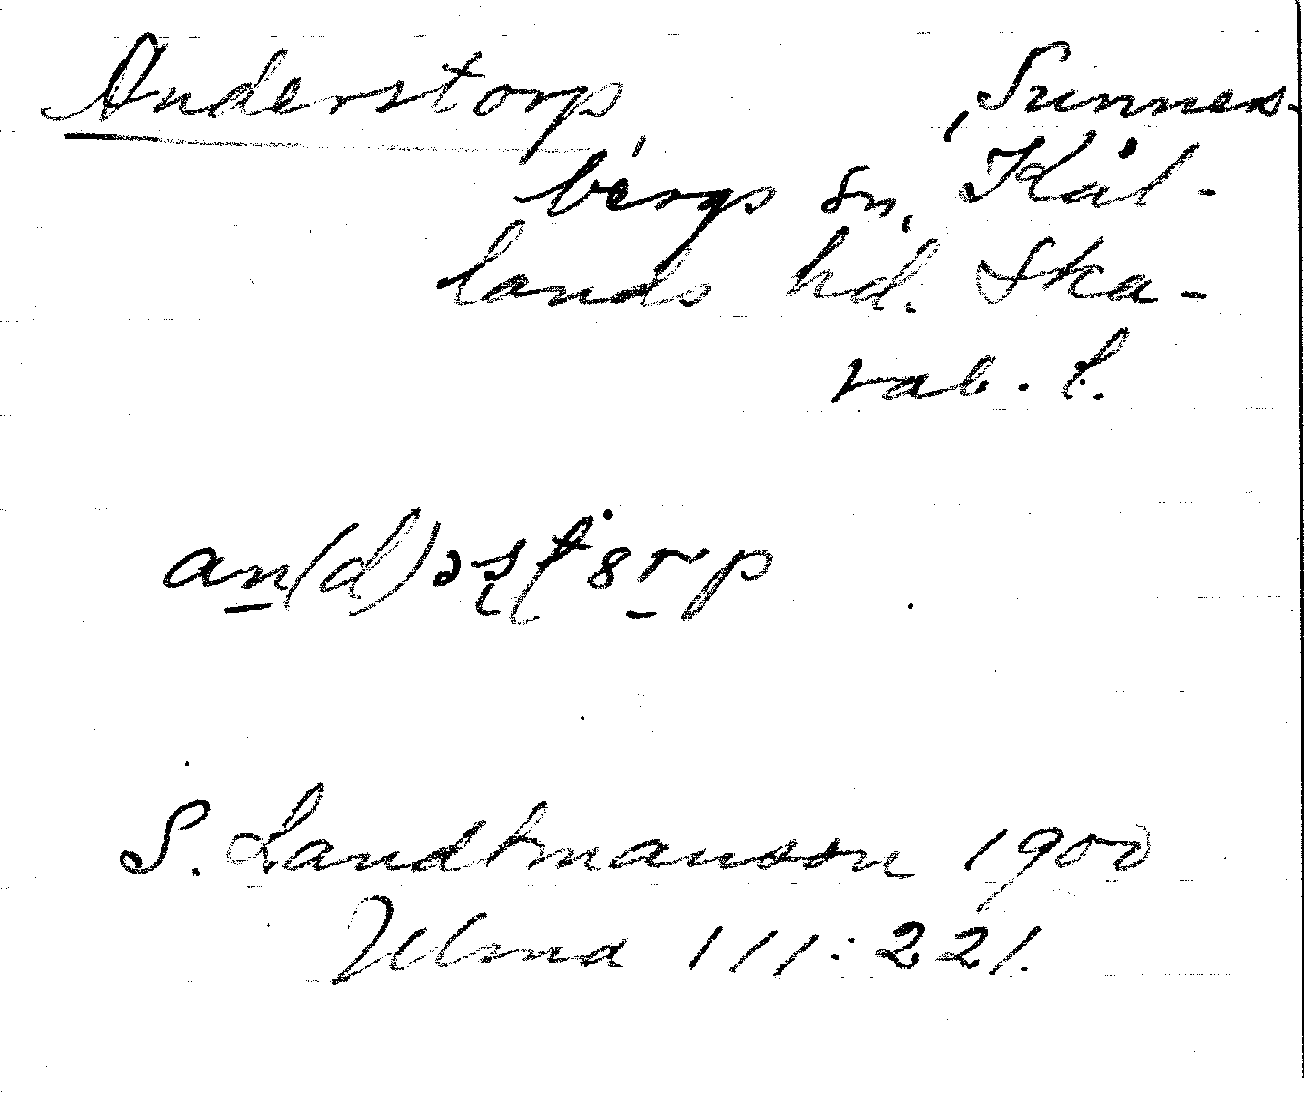 Anderstorp, Sunners-
bergs sn, Kål-
lands hd. Ska-
rab. l.
an(d)əʂʈ8rp
S. Landtmanson 1900
Ulma 111:221.